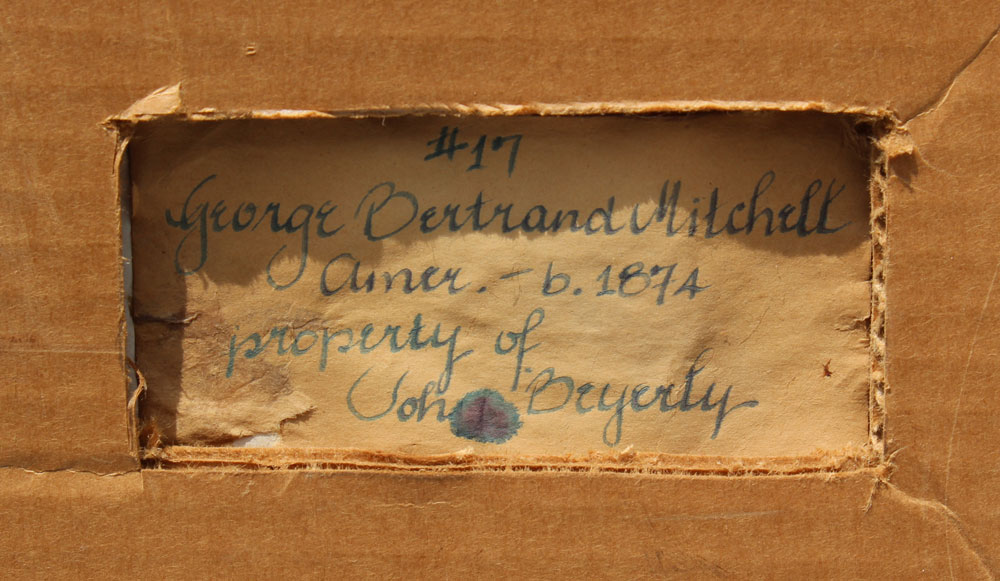 #17
George Bertrand Mitchell
Amer. – b. 1874
property of
John Beyerly